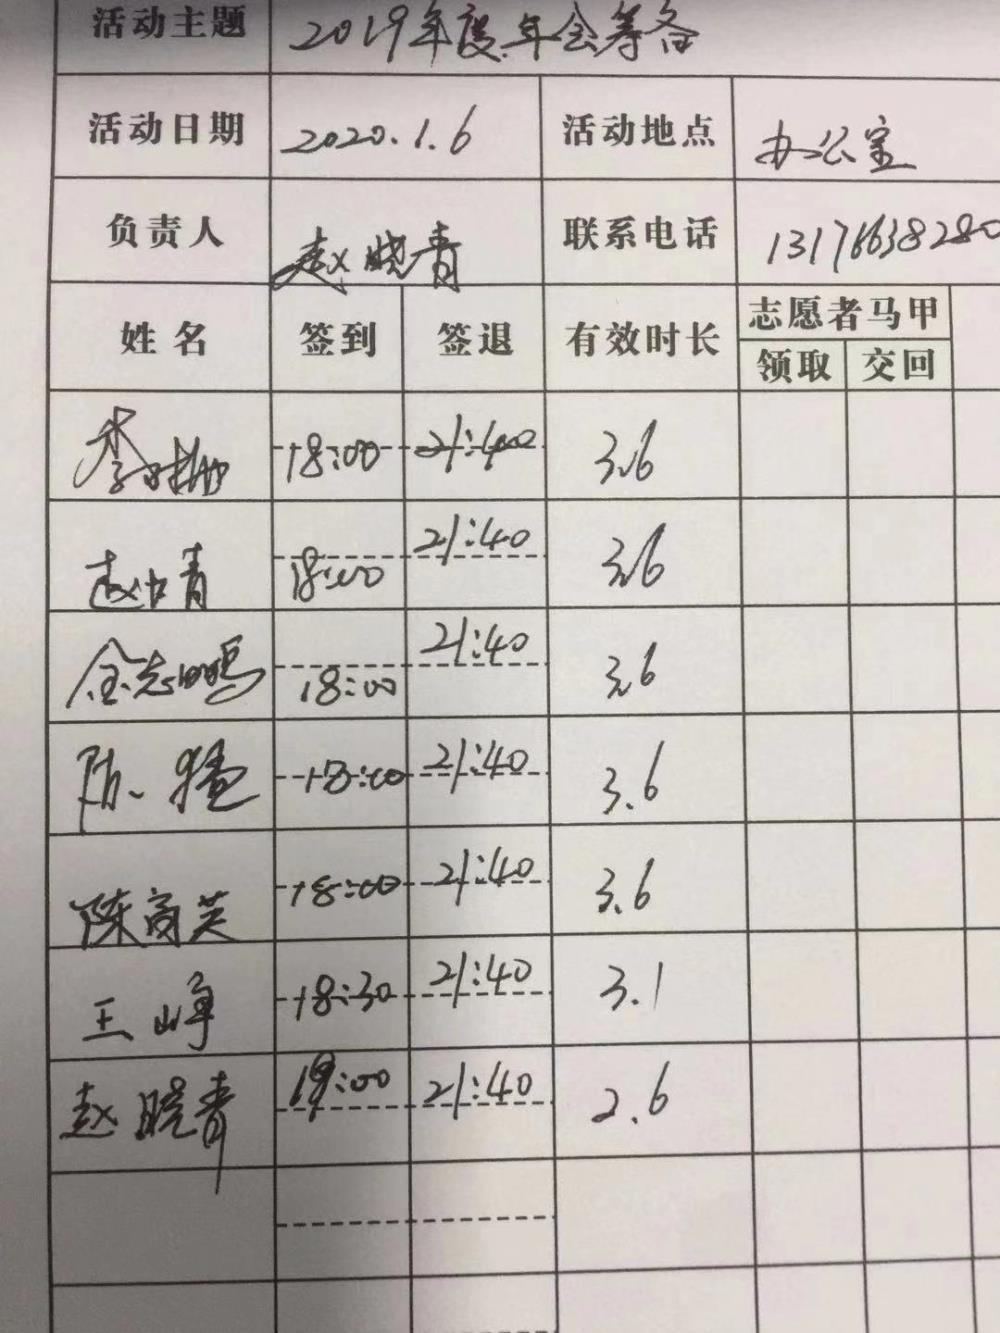 活动主题 2019年度年会筹备
活动日期 2020.1.6 活动地点 办公室
负责人 赵晓青 联系电话 13176638280
姓名 签到 签退 有效时长 志愿者马甲
领取 交回
18:00 21:40 3.6
赵 青 18:00 21:40 3.6
金志鸣 18:00 21:40 3.6
陈 18:00 21:40 3.6
陈 芙 18:00 21:40 3.6
王峥 18:30 21:40 3.1
赵晓青 19:00 21:40 2.6